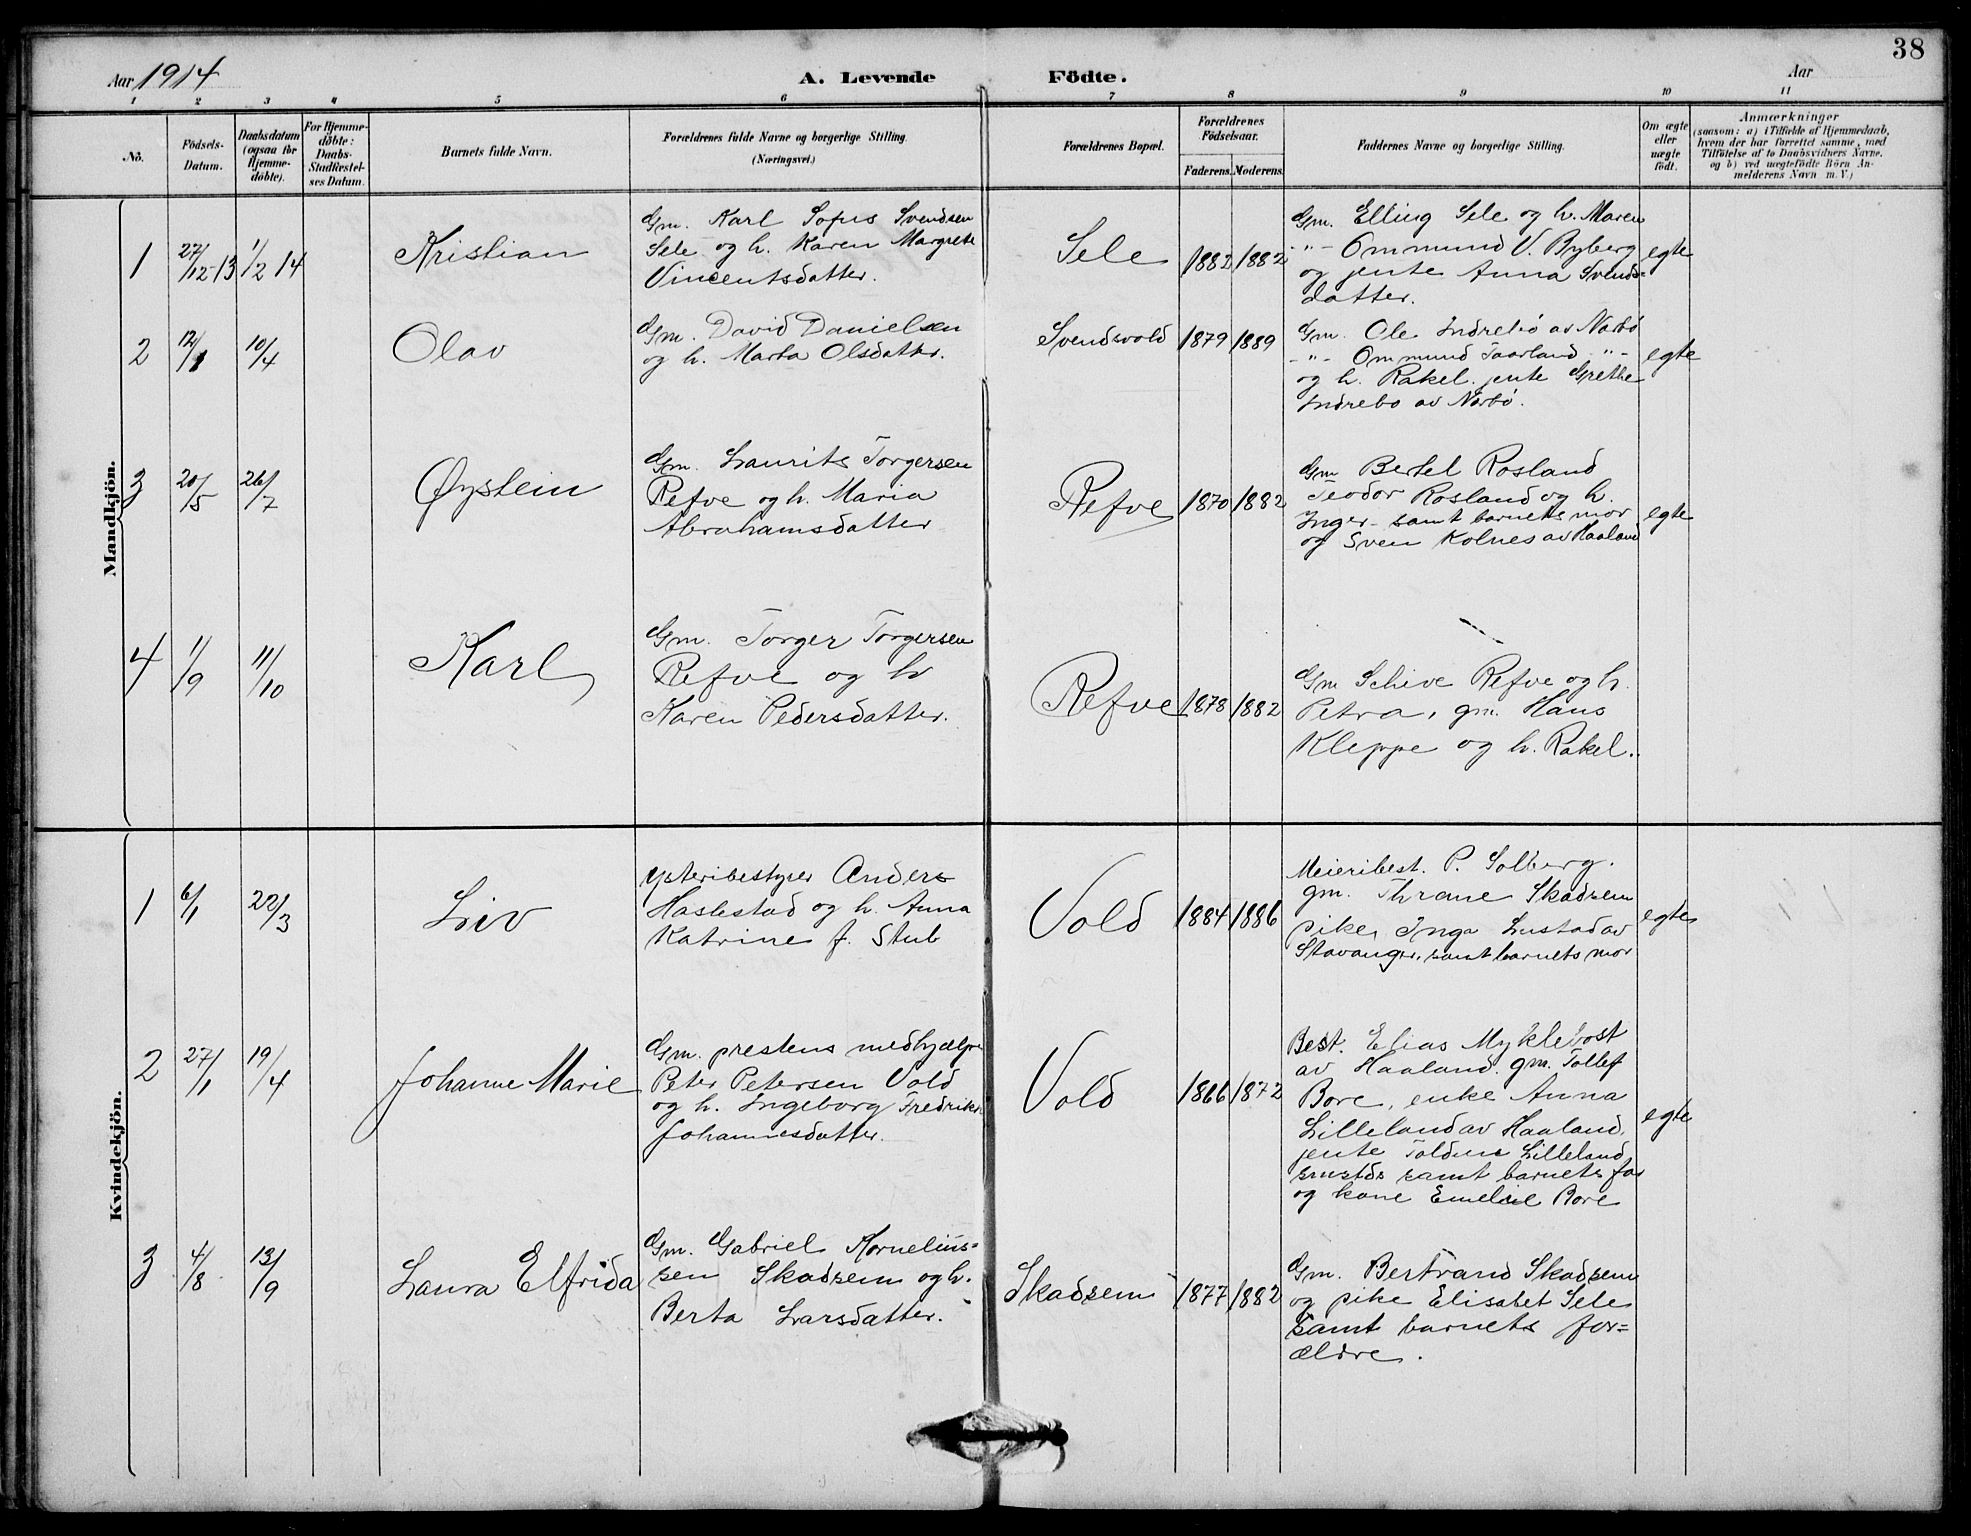 38
Aar 1914
A. Levende Födte.
Aar
1 2 3 4 5 6 7 8 9 10 11
No.
Födsels-
Datum.
Daabsdatum
(ogsaa for
Hjemme-
döbte).
For Hjemme-
döbte:
Daabs-
Stadfestel-
ses Datum.
Barnets fulde Navn.
Forældrenes fulde Navne og borgerlige Stilling.
(Næringsvei.)
Forældrenes Bopæl.
Forældrenes
Födselsaar.
Faderens. Moderens.
Faddernes Navne og borgerlige Stilling.
Om ægte
eller
uægte
födt.
Anmærkninger
(saasom: a) i Tilfælde af Hjemmedaab,
hvem der har forrettet samme, med
Tilföielse af to Daabsvidners Navne,
og b) ved uægtefödte Börn An-
melderens Navn m. V.)
Mandkjön.
1
27/12-13
1/2 14
Kristian
Gm. Karl Sofus Svendsen
Sele og h. Karen Margrete
Vincentsdatter.
Sele
1882 1882
Gm. Elling Sele og h. Maren
-"- Ommund V. Byberg
og jente Anna Svends=
datter.
egte
2
12/1
10/4
Olav
Gm. David Danielsen
og h. Marta Olsdatter.
Svendsvold
1879 1889
Gm. Ole Indrebø av Nærbø
-"- Ommund Taarland -"-
og h. Rakel. jente Grethe
Indrebø av Nærbø.
egte
3
20/5
26/7
Øystein
Gm. Laurits Torgersen
Refve og h. Maria
Abrahamsdatter
Refve
1870 1882
Gm Bertel Rosland
Teodor Rosland og h.
Inger - samt barnets mor
og Sven Kolnes av Haaland
egte
4
1/9
11/10
Karl
Gm. Torger Torgersen
Refve og h
Karen Pedersdatter.
Refve
1878 1882
Gm Schive Refve og h.
Petra, gm. Hans
Kleppe og h. Rakel.
Kvindekjön.
1
6/1
22/3
Liv
Ysteribestyrer Anders
Haslestad og h. Anna
Katrine f. Stub
Vold
1884 1886
Meieribest. P. Solberg.
gm. Thrane Skadsem
pike Inga Lustad av
Stavanger, samt barnets mor
egte
2
27/1
19/4
Johanne Marie
Gm. prestens medhjælper
Peter Petersen Vold
og h. Ingeborg Fredrikke
Johannesdatter.
Vold
1866 1872
Best. Elias Myklebost
av Haaland. gm. Tollef
Bore, enke Anna
Lilleland av Haaland,
jente Lilleland
samt barnets far
og kone Emelie Bore
egte
3
4/8
13/9
Laura Elfrida
Gm. Gabriel Kornelius=
sen Skadsem og h.
Berta Larsdatter.
Skadsem
1877 1882
Gm. Bertrand Skadsem
og pike Elisabet Sele
samt barnets for=
ældre.